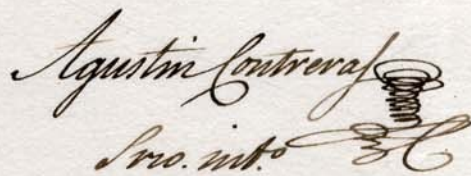 Agustin Contreras
Srio. int.º